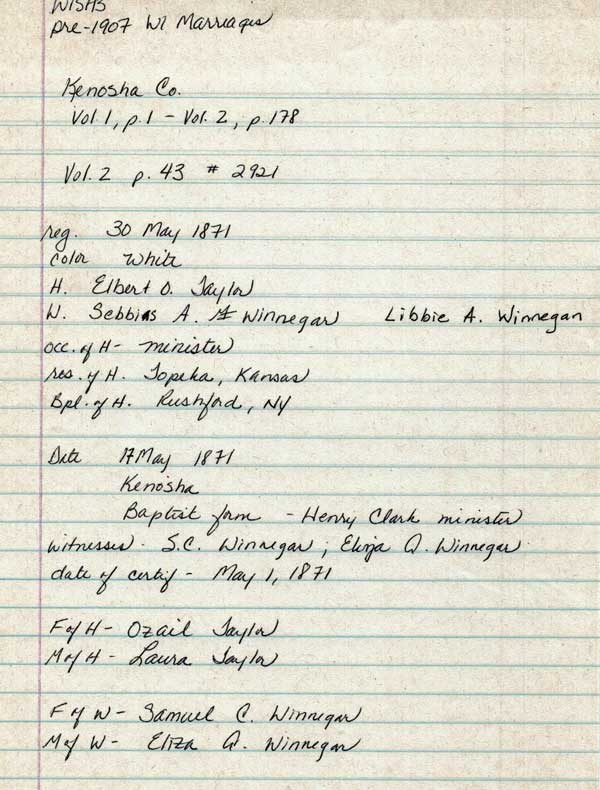 WISHS
pre-1907 WI Marriages
Kenosha Co.
Vol 1, p.1 - Vol. 2, p.178
Vol. 2 p. 43 # 2921
reg. 30 May 1871
color White
H. Elbert O. Taylor
W. Sebbias A. Winnegar Libbie A. Winnegan
occ. of H- minister
res. of H. Topeka, Kansas
Bpl. of H. Rushford, NY
Date 17 May 1871
Kenosha
Baptist form - Henry Clark minister
witnesses - S.C. Winnegar ; Eliza A. Winnegar
date of certif - May 1, 1871
F of H - Ozail Taylor
M of H - Laura Taylor
F of W - Samuel C. Winnegar
M of W - Eliza A. Winnegar